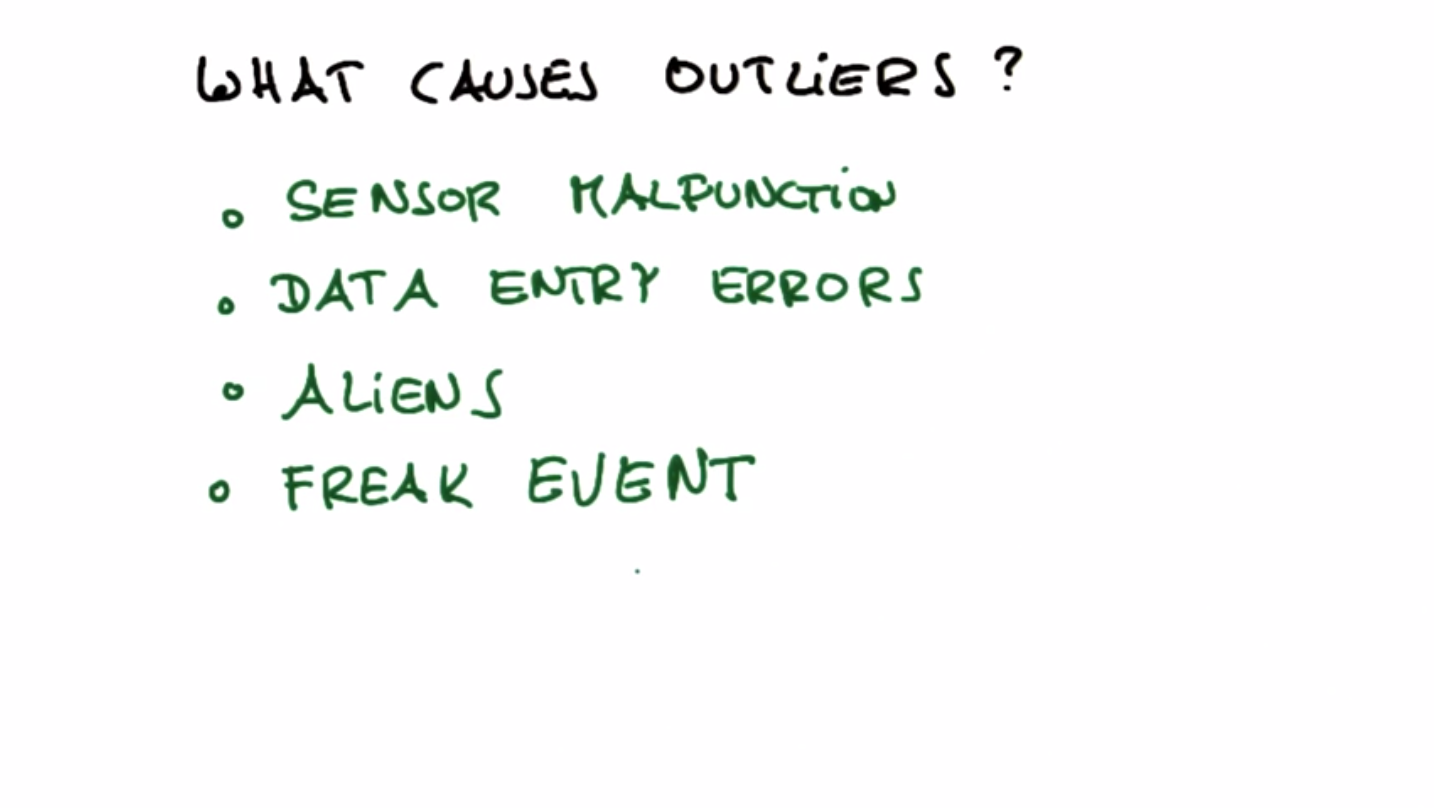 WHAT CAUSES OUTLiERS ?
SENSOR MALFUNCTiON
DATA ENTRY ERRORS
ALiENS
FREAK EVENT